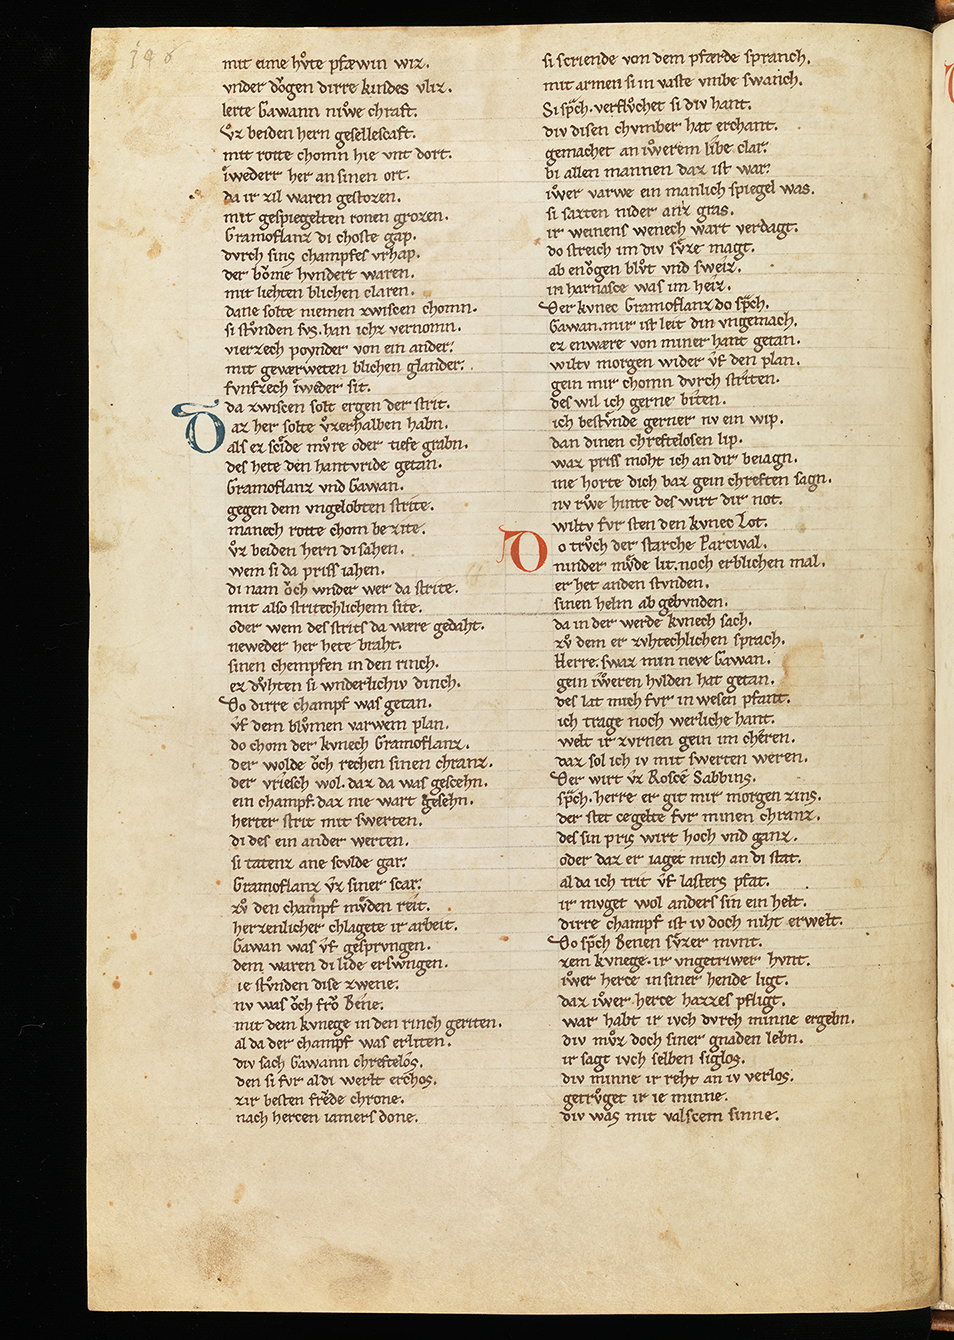 146
mit eime hv̊te pfæwin wiz.
vnder dv̊gen dirre kindes vliz.
lerte Gawann niẘe chraft.
v̊z beiden hern gesellescaft.
mit rotte chomn hie vnt dort.
ieẘederr her an sinen ort.
da ir zil waren gestozen.
mit gespiegelten ronen grozen.
Gramoflanz di choste gap.
dvrch sins champfes vrhap.
der bome hvndert waren.
mit liehten blichen claren.
dane solte niemen zwiscen chomn.
si stv̊nden fvs. han ichz vernomn.
vierzech poynder von ein ander.
mit geværweten blichen glander.
fvnfzech iweder sit.
da zwiscen solt ergen der strit.
Daz her solte v̊zerhalben habn.
als ez scide mv̊re oder tiefe grabn.
des hete den hantvride getan.
Gramoflanz vnd Gawan.
gegen dem vngelobten strite.
manech rotte chom bezite.
v̊z beiden hern di sahen.
wem si da priss iahen.
di nam ǒch wnder wer da strite.
mit also stritechlichem site.
oder wem des strits da wære gedaht.
neweder her hete braht.
sinen chempfen in den rinch.
ez dv̊hten si wnderlichiv dinch.
Do dirre champf was getan.
v̊f dem blv̊men varwem plan.
do chom der kvnech Gramoflanz.
der wolde ǒch rechen sinen chranz.
der vriesch wol. daz da was gescehn.
ein champf. daz nie wart gesehn.
herter strit mit swerten.
di des ein ander werten.
si tatenz ane scvlde gar.
Gramoflanz v̊z siner scar.
zv̊ den champf mv̊den reit.
herzenlicher chlagete ir arbeit.
Gawan was v̊f gesprvngen.
dem waren di lide erswngen.
ie stv̊nden dise zwene.
nv was ǒch frǒ Bene.
mit dem kvnege in den rinch geriten.
al da der champf was erliten.
div sach Gawann chreftelos.
den si fvr al di werlt erchos.
zir besten frevde chrone.
nach hercen iamers done.
si scriende von dem pfærde spranch.
mit armen si in vaste vmbe swanch.
Si spch. verflv̊chet si div hant.
div disen chvmber hat erchant.
gemachet an iẘerem libe clar.
bi allen mannen daz ist war.
iẘer varwe ein manlich spiegel was.
si sazten nider anz gras.
ir weinens wenech wart verdagt.
do streich im div sv̊ze magt.
ab en ǒgen blv̊t vnd sweiz.
in harnasce was im heiz.
Der kvnec Gramoflanz do spch.
Gawan. mir ist leit din vngemach.
ez enwære von miner hant getan.
wiltv morgen wider v̊f den plan.
gein mir chomn dvrch striten.
des wil ich gerne biten.
ich bestv̊nde gerner nv ein wip.
dan dinen chreftelosen lip.
waz priss moht ich an dir beiagn.
ine horte dich baz gein chreften sagn.
nv rv̊we hinte des wirt dir not.
wiltv fvr sten den kvnec Lot.
Do trv̊ch der starche Parcival.
ninder mv̊de lit. noch erblichen mal.
er het anden stvnden.
sinen helm ab gebvnden.
da in der werde kvnech sach.
zv̊ dem er zvhtechlichen sprach.
Herre. swaz min neve Gawan.
gein iẘeren hvlden hat getan.
des lat mich fvr in wesen pfant.
ich trage noch werliche hant.
welt ir zvrnen gein im cheren.
daz sol ich iv mit swerten weren.
Der wirt v̊z Rosce Sabbins.
spch. herre er git mir morgen zins.
der stet ce gelte fvr minen chranz.
des sin pris wirt hoch vnd ganz.
oder daz er iaget mich an di stat.
al da ich trit v̊f lasters pfat.
ir mvget wol anders sin ein helt.
dirre champf ist iv doch niht erwelt.
Do spch Benen sv̊zer mvnt.
zem kvnege. ir vngetriwer hvnt.
iẘer herce in siner hende ligt.
daz iẘer herce hazzes pfligt.
war habt ir ivch dvrch minne ergebn.
div mv̊z doch siner gnaden lebn.
ir sagt ivch selben siglos.
div minne ir reht an iv verlos.
getrv̊get ir ie minne.
div was mit valscem sinne.